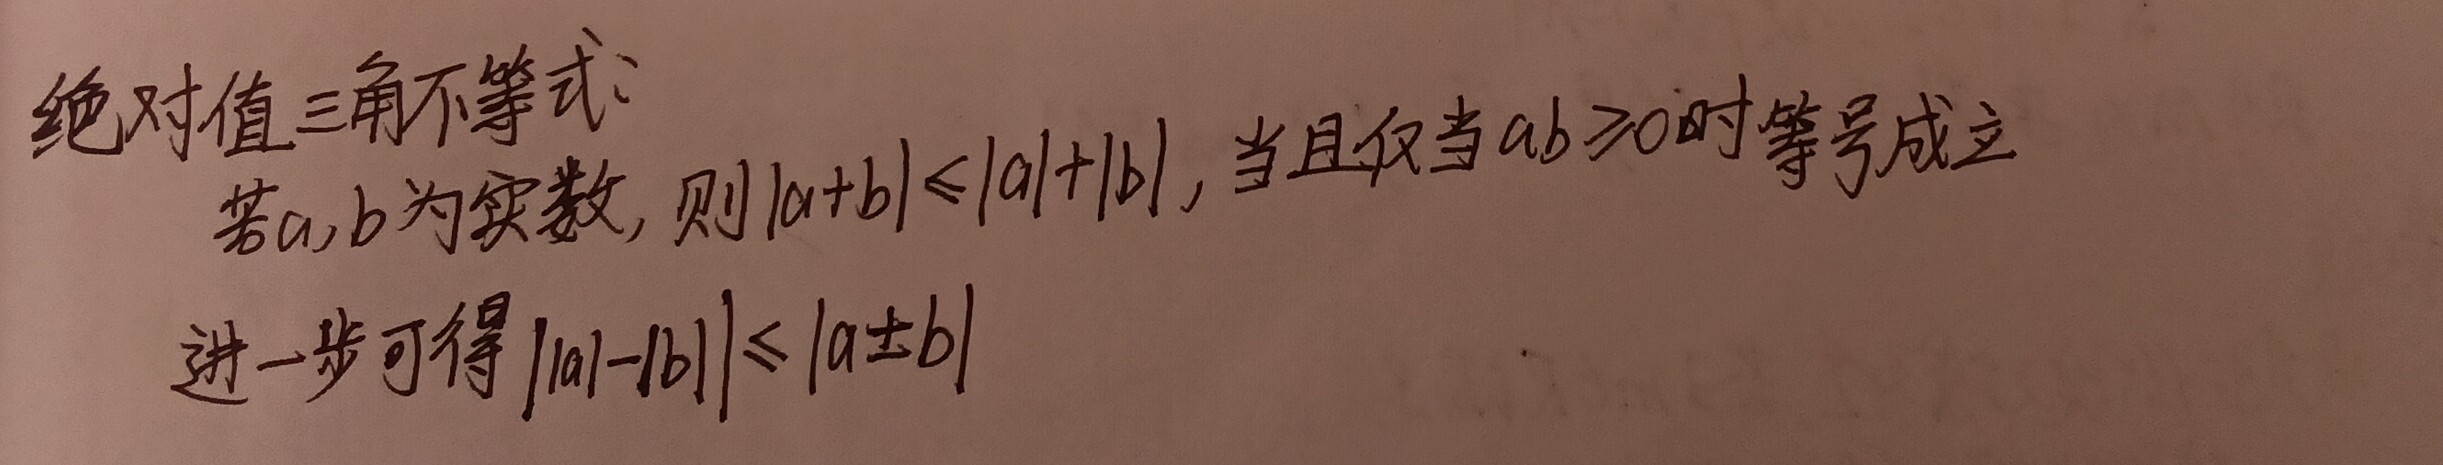 绝对值三角不等式：
若a,b为实数,则|a+b|≤|a|+|b|,当且仅当ab≥0时等号成立
进一步可得||a|-|b||≤|a±b|